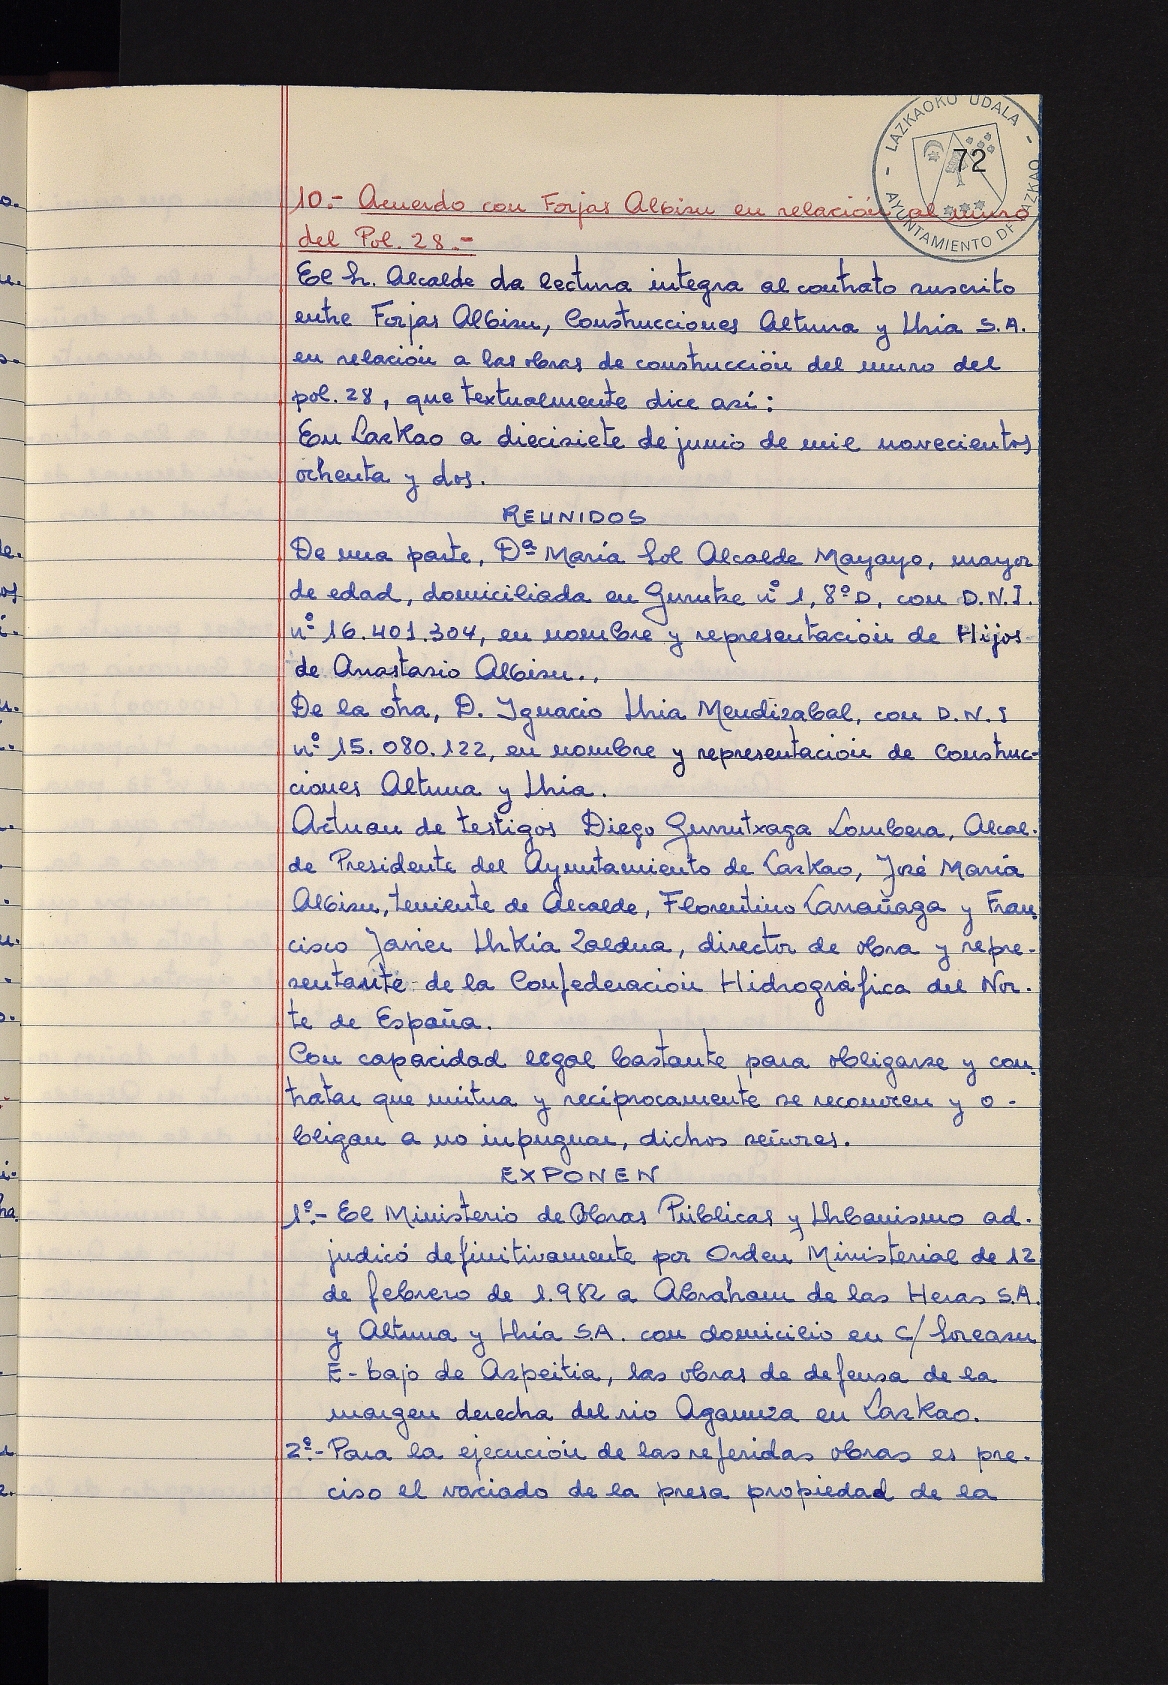 LAZKAOKO UDALA
72
AYUNTAMIENTO DE LAZKAO
10.- Acuerdo con Forjas Albisu en relación al muro
del Pol. 28.-
El Sr. Alcalde da lectura integra al contrato suscrito
entre Forjas Albisu, Construcciones Altuna y Uria S.A.
en relación a las obras de construcción del muro del
pol. 28, que textualmente dice así:
En Lazkao a diecisiete de junio de mil novecientos
ochenta y dos.
REUNIDOS
De una parte, Dª María Sol Alcalde Mayayo, mayor
de edad, domiciliada en Gurutze nº 1, 8º D, con D.N.I.
nº 16.401.304, en nombre y representación de Hijos
de Anastasio Albisu.,
De la otra, D. Ignacio Uria Mendizabal, con D.N.I
nº 15.080.122, en nombre y representación de Construc-
ciones Altuna y Uria.
Actuan de testigos Diego Gurrutxaga Lombera, Alcal-
de Presidente del Ayuntamiento de Lazkao, José María
Albisu, teniente de Alcalde, Florentino Larrañaga y Fran-
cisco Javier Urkia Zaldua, director de obra y repre-
sentante de la Confederación Hidrográfica del Nor-
te de España.
Con capacidad legal bastante para obligarse y con-
tratar que mútua y recíprocamente se reconocen y o-
bligan a no inpugnar, dichos señores.
EXPONEN
1º.- El Ministerio de Obras Públicas y Urbanismo ad-
judicó definitivamente por Orden Ministerial de 12
de febrero de 1.982 a Abraham de las Heras S.A.
y Altuna y Uría S.A. con domicilio en C/ Soreasu
E-bajo de Azpeitia, las obras de defensa de la
margen derecha del rio Agauntza en Lazkao.
2º.- Para la ejecución de las referidas obras es pre-
ciso el vaciado de la presa propiedad de la